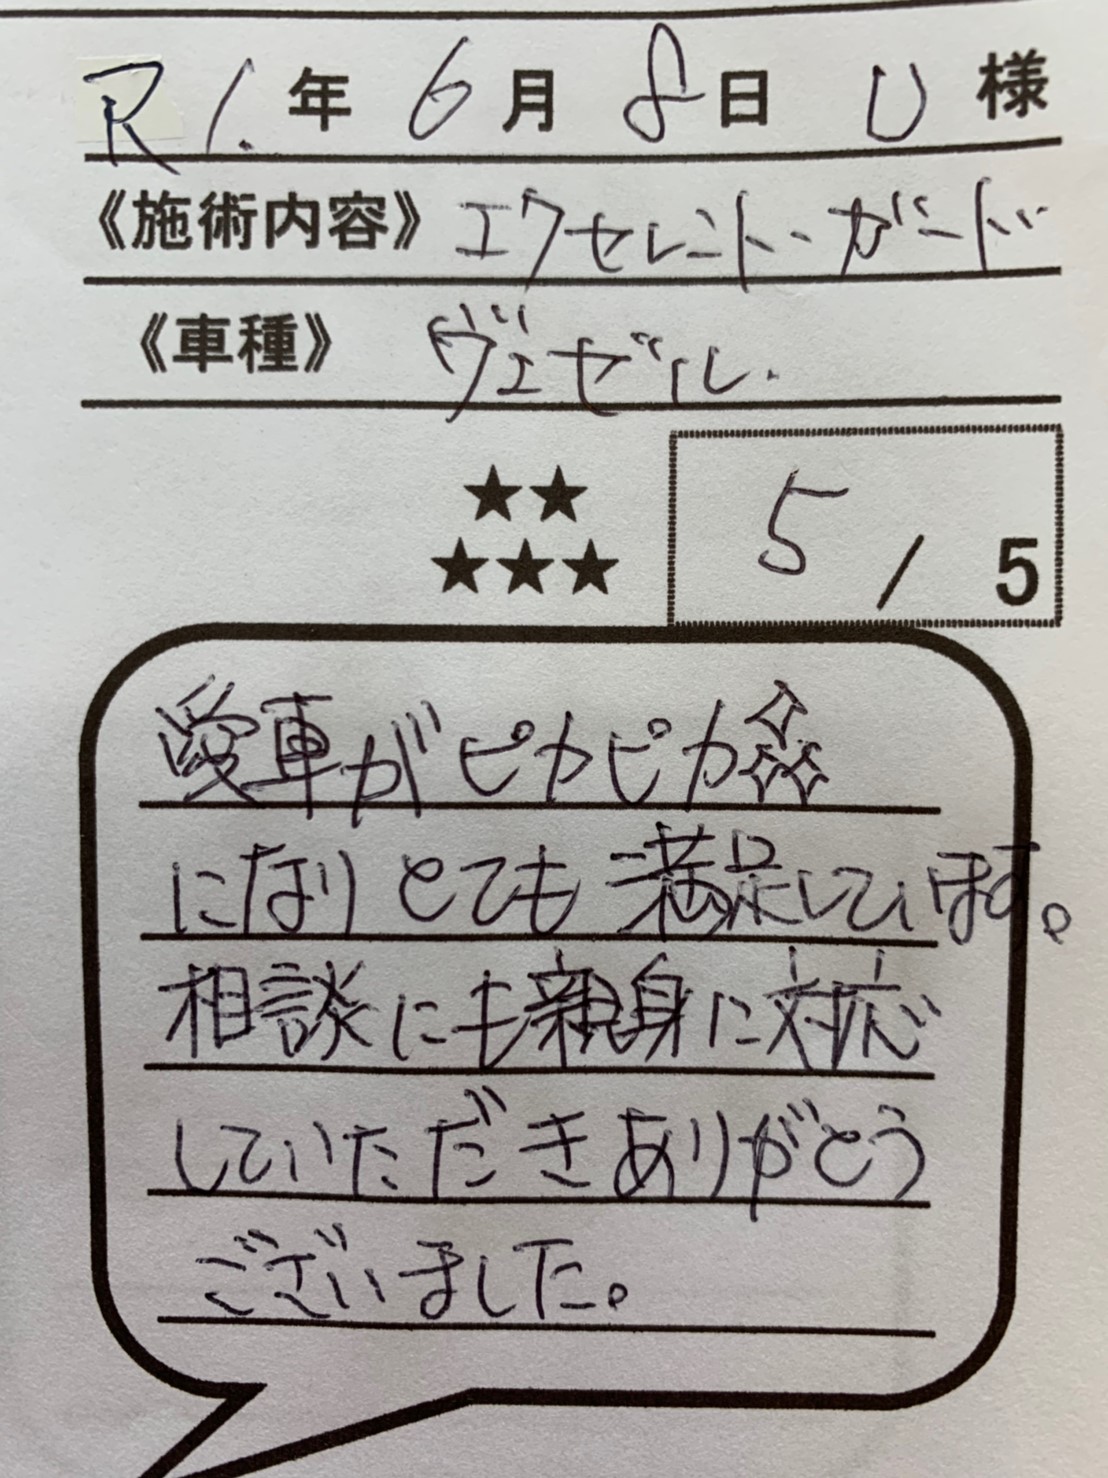 R1.年6月8日 U様
《施術内容》エクセレント・ガード
《車種》ヴェゼル.
★★
★★★ 5/5
愛車がピカピカ
になりとても満足しています。
相談にも親身に対応
していただきありがとう
ございました。